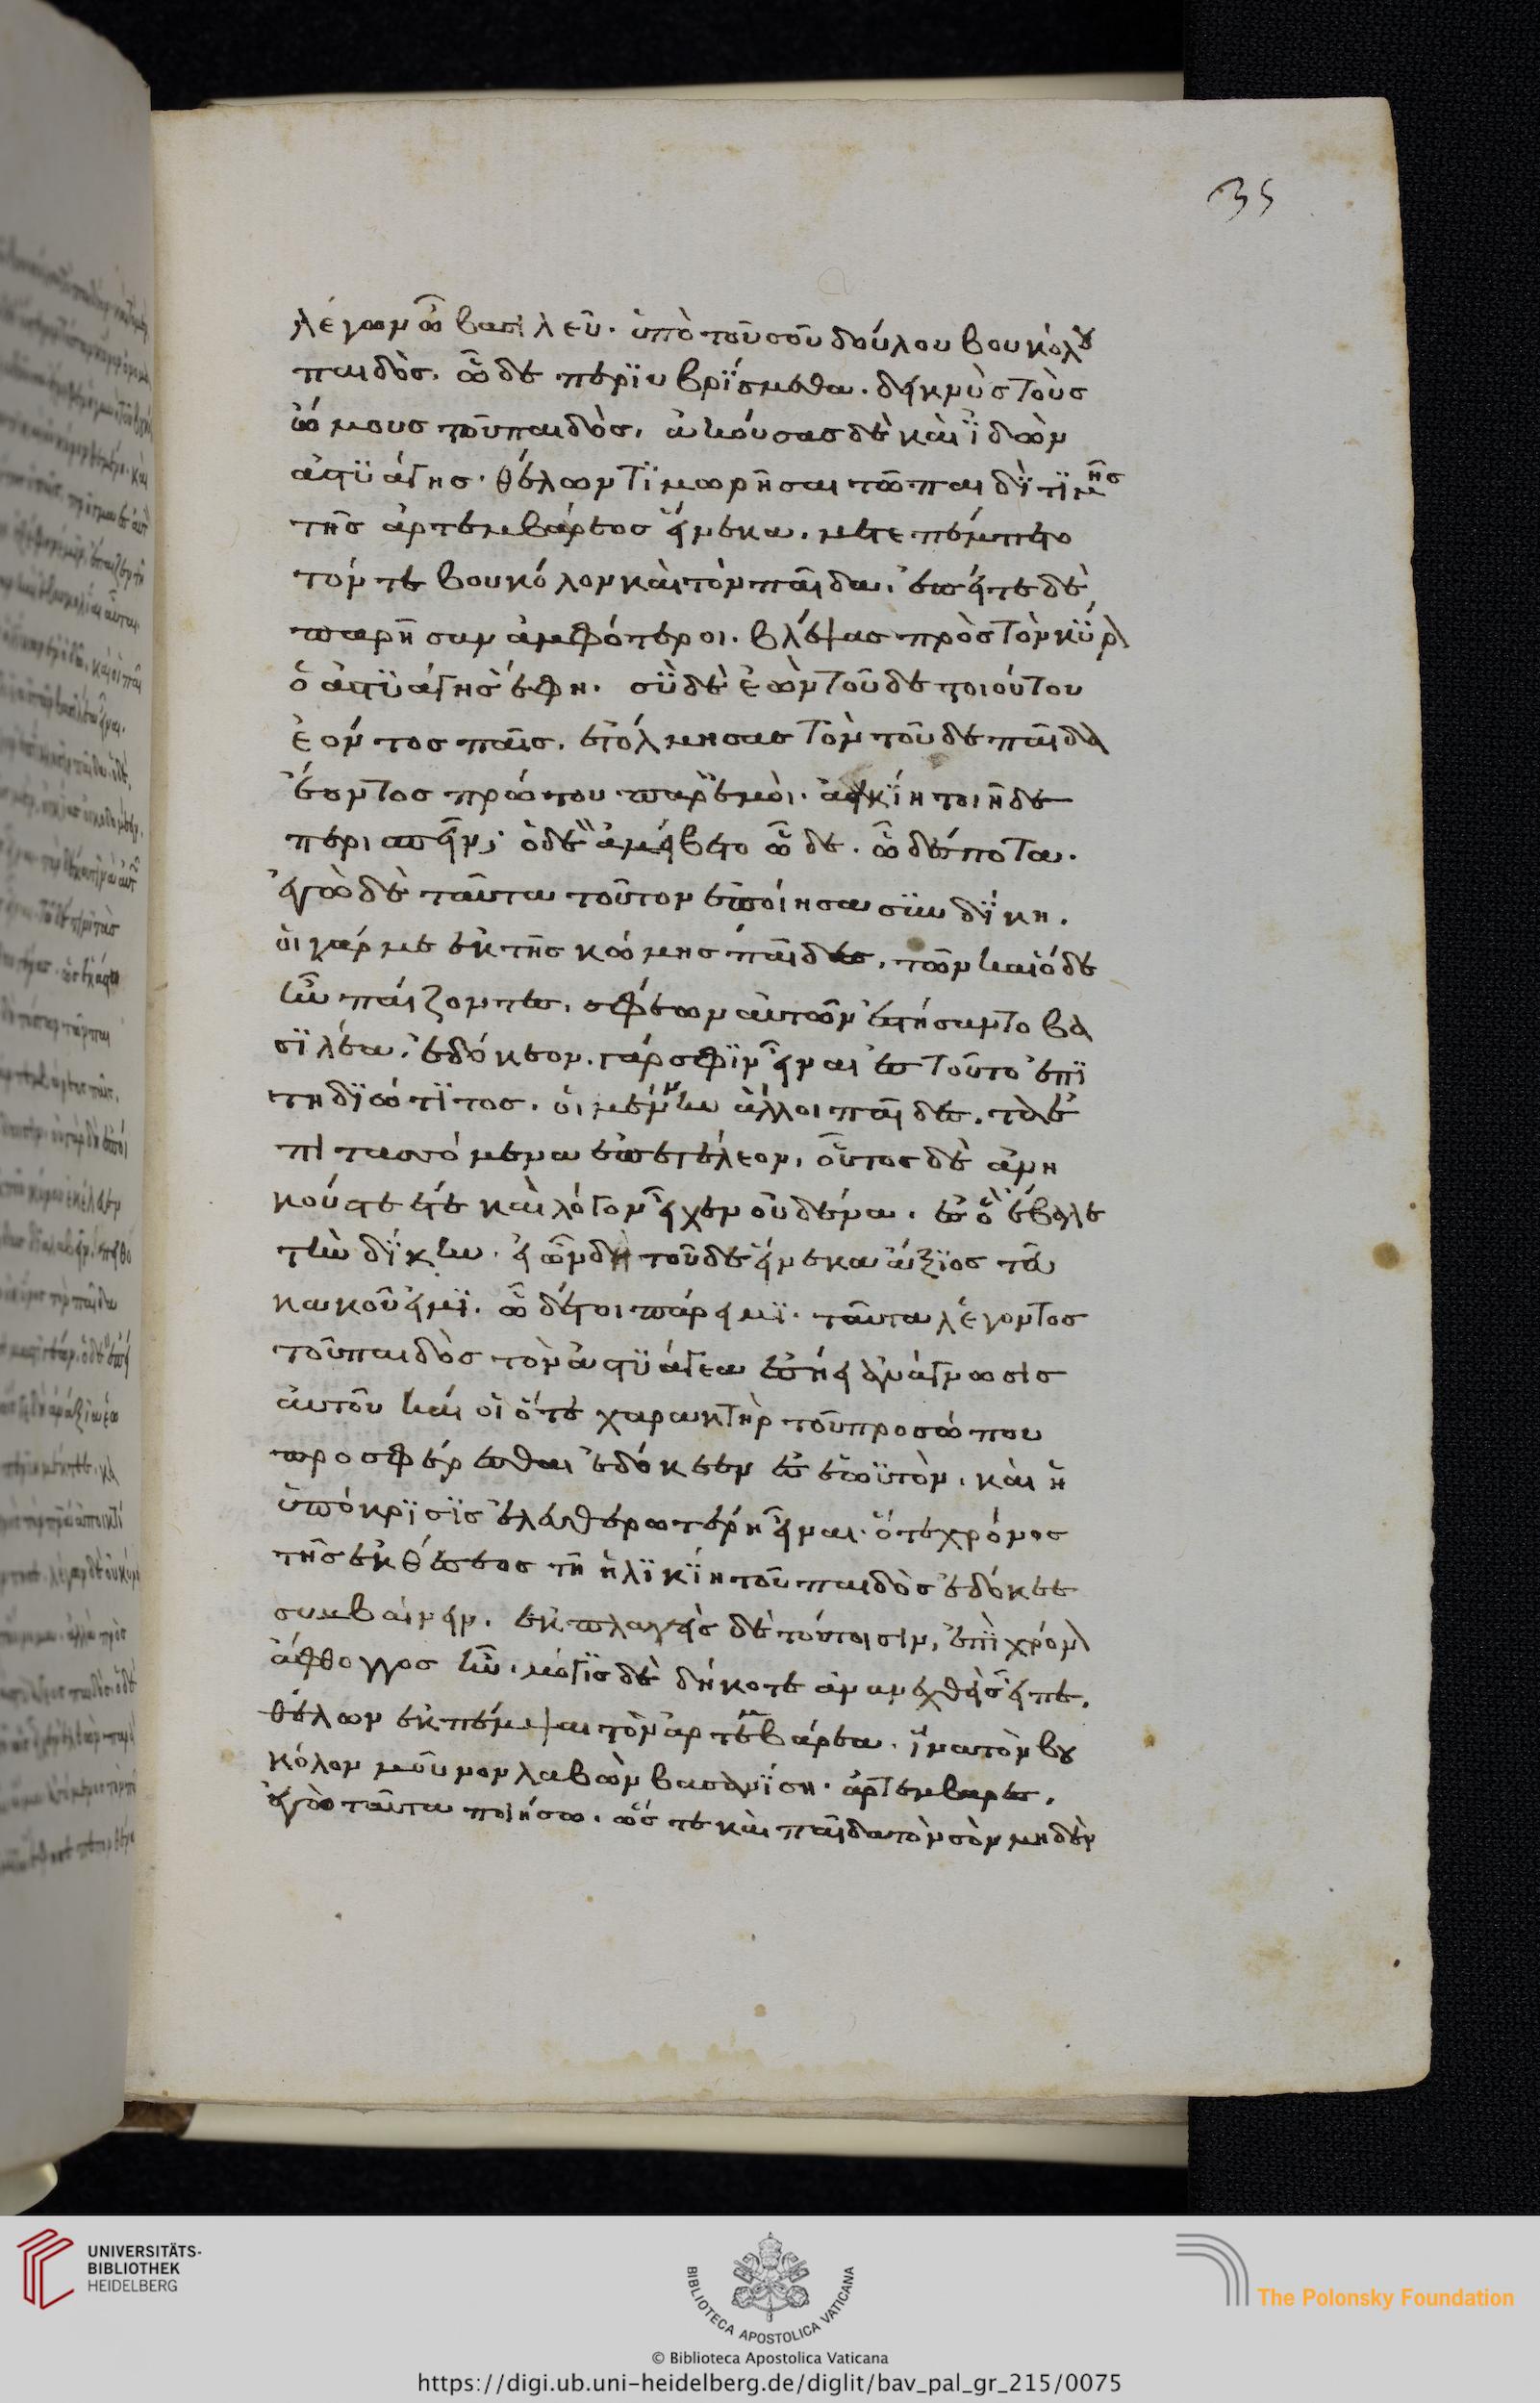 35
λέγων ὦ βασιλεῦ. ὑπὸ τοῦ σοῦ δούλου βουκόλου
παιδὸς. ὧδε περϊυβρΐσμεθα. δεικνὺς τοὺς
ὤμους τοῦ παιδὸς. ἀκούσας δὲ καὶ ϊδὼν
ἀστϋάγης. θέλων τϊμωρῆσαι τῶ παιδῒ τϊμῆς
τῆς ἀρτεμβάρεος εἵνεκα. μετεπέμπετο
τόν τε βουκόλον καὶ τὸν παῖδα. ἐπείτε δὲ
παρῆσαν ἀμφότεροι. βλέψας πρὸς τὸν κῦρον
ὁ ἀστϋάγης ἔφη. σῢ δὲ ἐὼν τοῦδε τοιούτου
ἐόντος παῖς. ἐτόλμησας τὸν τοῦδε παῖδα
ἐόντος πρώτου παρ' ἐμοὶ. ἀεικΐη τοιῆδε
περισπεῖν; ὁ δὲ ἀμείβετο ὧδε. ὦ δέσποτα.
ἐγὼ δὲ ταῦτα τοῦτον ἐποίησα σὺν δΐκη.
οἱ γάρ με ἐκ τῆς κώμης παῖδες, τῶν καὶ ὅδε
ἦν παίζοντες. σφέων αὐτῶν ἐστήσαντο βα
σϊλέα. ἐδόκεον γάρ σφϊν εἶναι ἐς τοῦτο ἐπϊ
τηδϊώτϊτος. οἱ μέν νυν ἄλλοι παῖδες. τὰ ἐ
πιτασσόμενα ἐπετέλεον. οὗτος δὲ ἀνη
κούστεέ τε καὶ λόγον εἶχεν οὐδένα. ἐς ὃ ἔλαβε
τὴν δΐκην. εἰ ὦν δὴ τοῦδε εἵνεκα ἄξϊος τευ
κακοῦ εἰμϊ. ὧδέ τοι πάρειμϊ. ταῦτα λέγοντος
τοῦ παιδὸς τὸν ἀστϋάγεα ἐσήει ἀνάγνωσις
αὐτοῦ καί οἱ ὅ τε χαρακτὴρ τοῦ προσώπου
προσφέρεσθαι ἐδόκεεν ἐς ἑωϋτὸν. καὶ ἡ
ὑπόκρϊσϊς ἐλευθερωτέρη εἶναι. ὅ τε χρόνος
τῆς ἐκθέσεος τῆ ἡλϊκΐη τοῦ παιδὸς ἐδόκεε
συμβαίνειν. ἐκπλαγεὶς δὲ τούτοισιν, ἐπῒ χρόνον
ἄφθογγος ἦν. μόγϊς δὲ δήκοτε ἀνανειχθεὶς εἶπε.
θέλων ἐκπέμψαι τὸν ἀρτεμβάρεα. ἵνα τὸν βου
κόλον μοῦνον λαβὼν βασανΐση. ἀρτέμβαρες.
ἐγὼ ταῦτα ποιήσω. ὥς τε καὶ παῖδα τὸν σὸν μηδὲν
UNIVERSITÄTS-
BIBLIOTHEK
HEIDELBERG
BIBLIOTECA APOSTOLICA VATICANA
The Polonsky Foundation
© Biblioteca Apostolica Vaticana
https://digi.ub.uni-heidelberg.de/diglit/bav_pal_gr_215/0075